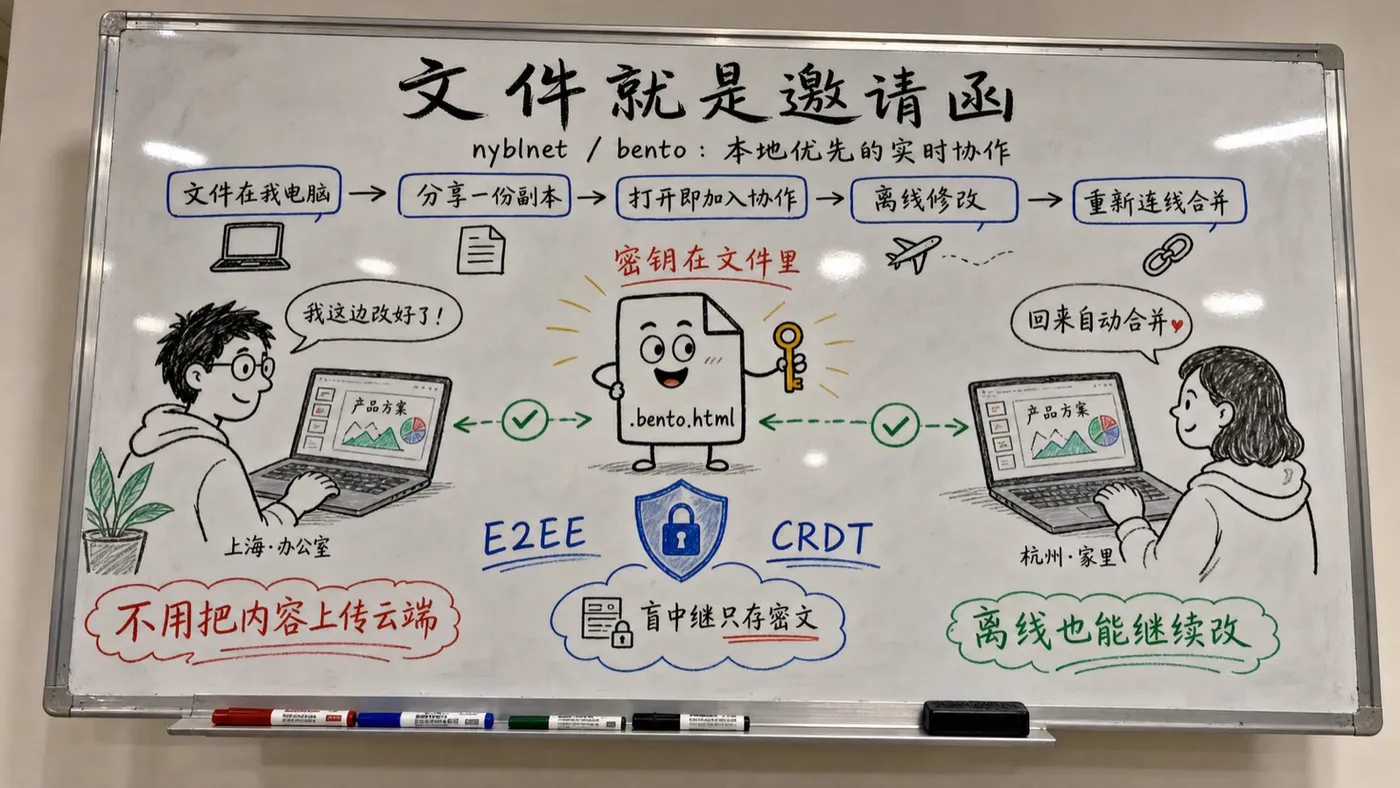 文件就是邀请函
nyblnet / bento：本地优先的实时协作
文件在我电脑
分享一份副本
打开即加入协作
离线修改
重新连线合并
密钥在文件里
我这边改好了！
回来自动合并
产品方案
.bento.html
产品方案
上海·办公室
E2EE
CRDT
杭州·家里
不用把内容上传云端
盲中继只存密文
离线也能继续改